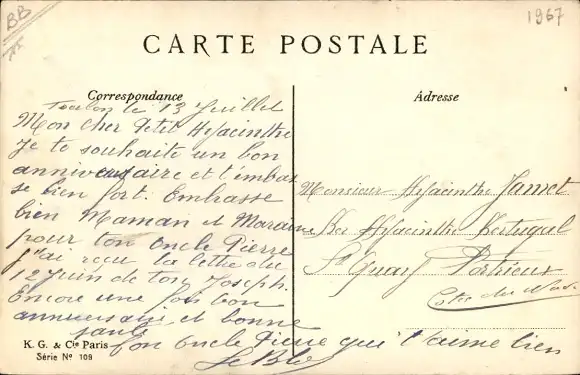 BB
1967
CARTE POSTALE
Correspondance
Adresse
Toulon le 13 Juillet
Mon cher Petit Hyacinthe
Je te souhaite un bon
anniversaire et t'embras
se bien fort. Embrasse
bien Maman et Marraine
pour ton Oncle Pierre
J'ai reçu la lettre du
12 Juin de ton Joseph.
Encore une fois bon
anniversaire et bonne
santé
Ton Oncle Pierre qui t'aime bien
Le
Monsieur Hyacinthe Jamet
Hyacinthe
St Quay Portrieux
Côtes du Nord
K. G. & Cie Paris
Série No 109